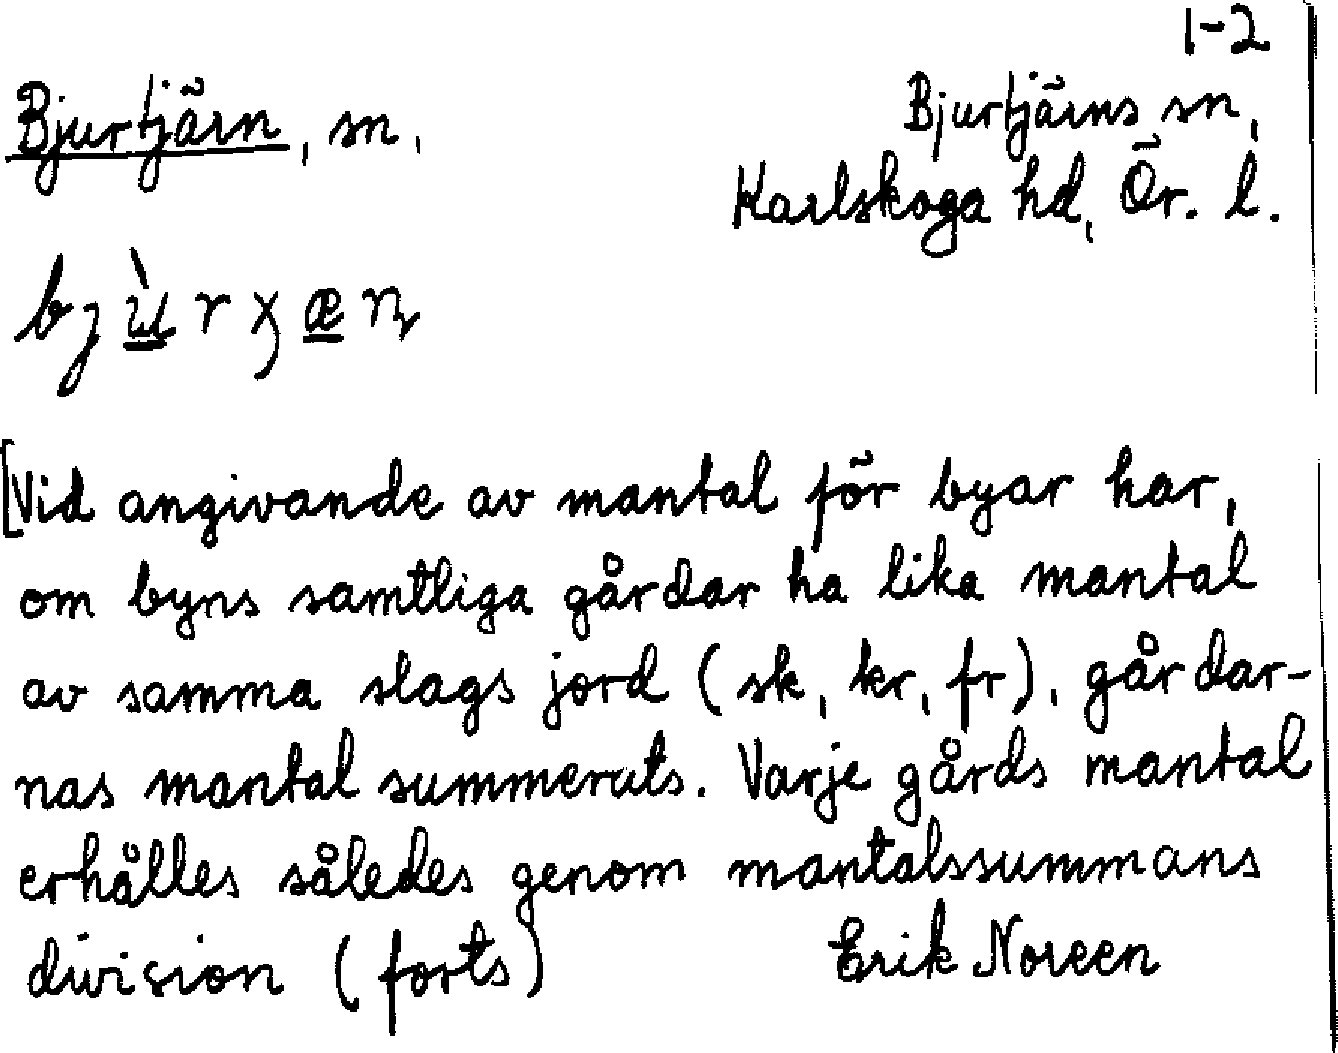 1-2
Bjurtjärn, sn,
Bjurtjärns sn,
Karlskoga hd, Ör. l.
[Vid angivande av mantal för byar har,
om byns samtliga gårdar ha lika mantal
av samma slags jord (sk, kr, fr), gårdar-
nas mantal summerats. Varje gårds mantal
erhålles således genom mantalssummans
division (forts)
Erik Noreen